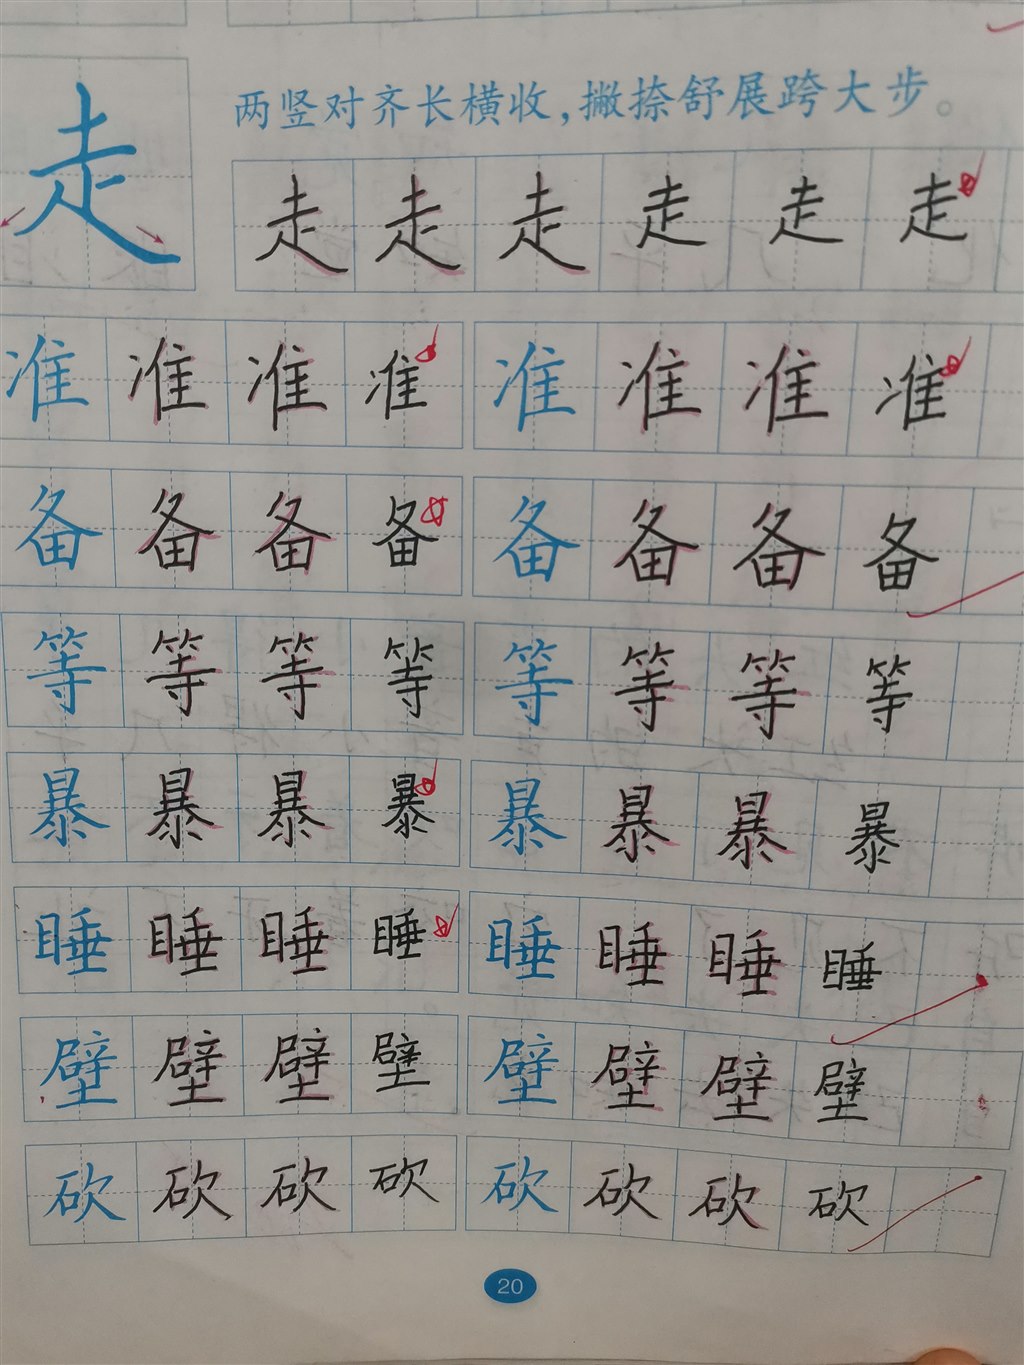 走 两竖对齐长横收，撇捺舒展跨大步。
走 走 走 走 走 走
准 准 准 准 准 准 准 准
备 备 备 备 备 备 备 备
等 等 等 等 等 等 等 等
暴 暴 暴 暴 暴 暴 暴 暴
睡 睡 睡 睡 睡 睡 睡 睡
壁 壁 壁 壁 壁 壁 壁 壁
砍 砍 砍 砍 砍 砍 砍 砍
20